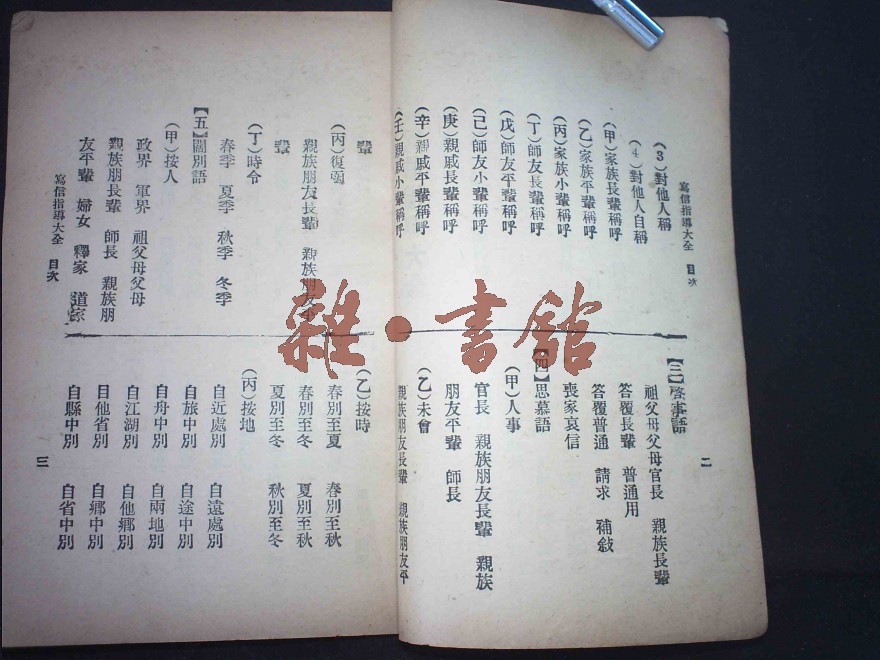 寫信指導大全 目次
二
(3)對他人稱
(4)對他人自稱
(甲)家族長輩稱呼
(乙)家族平輩稱呼
(丙)家族小輩稱呼
(丁)師友長輩稱呼
(戊)師友平輩稱呼
(己)師友小輩稱呼
(庚)親戚長輩稱呼
(辛)親戚平輩稱呼
(壬)親戚小輩稱呼
【三】啓事語
祖父母父母官長 親族長輩
答覆長輩 普通用
答覆普通 請求 補敍
喪家哀信
【四】思慕語
(甲)人事
官長 親族朋友長輩 親族
朋友平輩 師長
(乙)未會
親族朋友長輩 親族朋友平
輩
(丙)復
親族朋友長輩 親族朋友
輩
(丁)時令
春季 夏季 秋季 冬季
【五】闊別語
(甲)按人
政界 軍界 祖父母父母
親族朋長輩 師長 親族朋
友平輩 婦女 釋家 道家
(乙)按時
春別至夏 春別至秋
春別至冬 夏別至秋
夏別至冬 秋別至冬
(丙)按地
自近處別 自遠處別
自旅中別 自途中別
自舟中別 自兩地別
自江湖別 自他鄉別
自他省別 自鄉中別
自縣中別 自省中別
寫信指導大全 目次
三
雜·書館